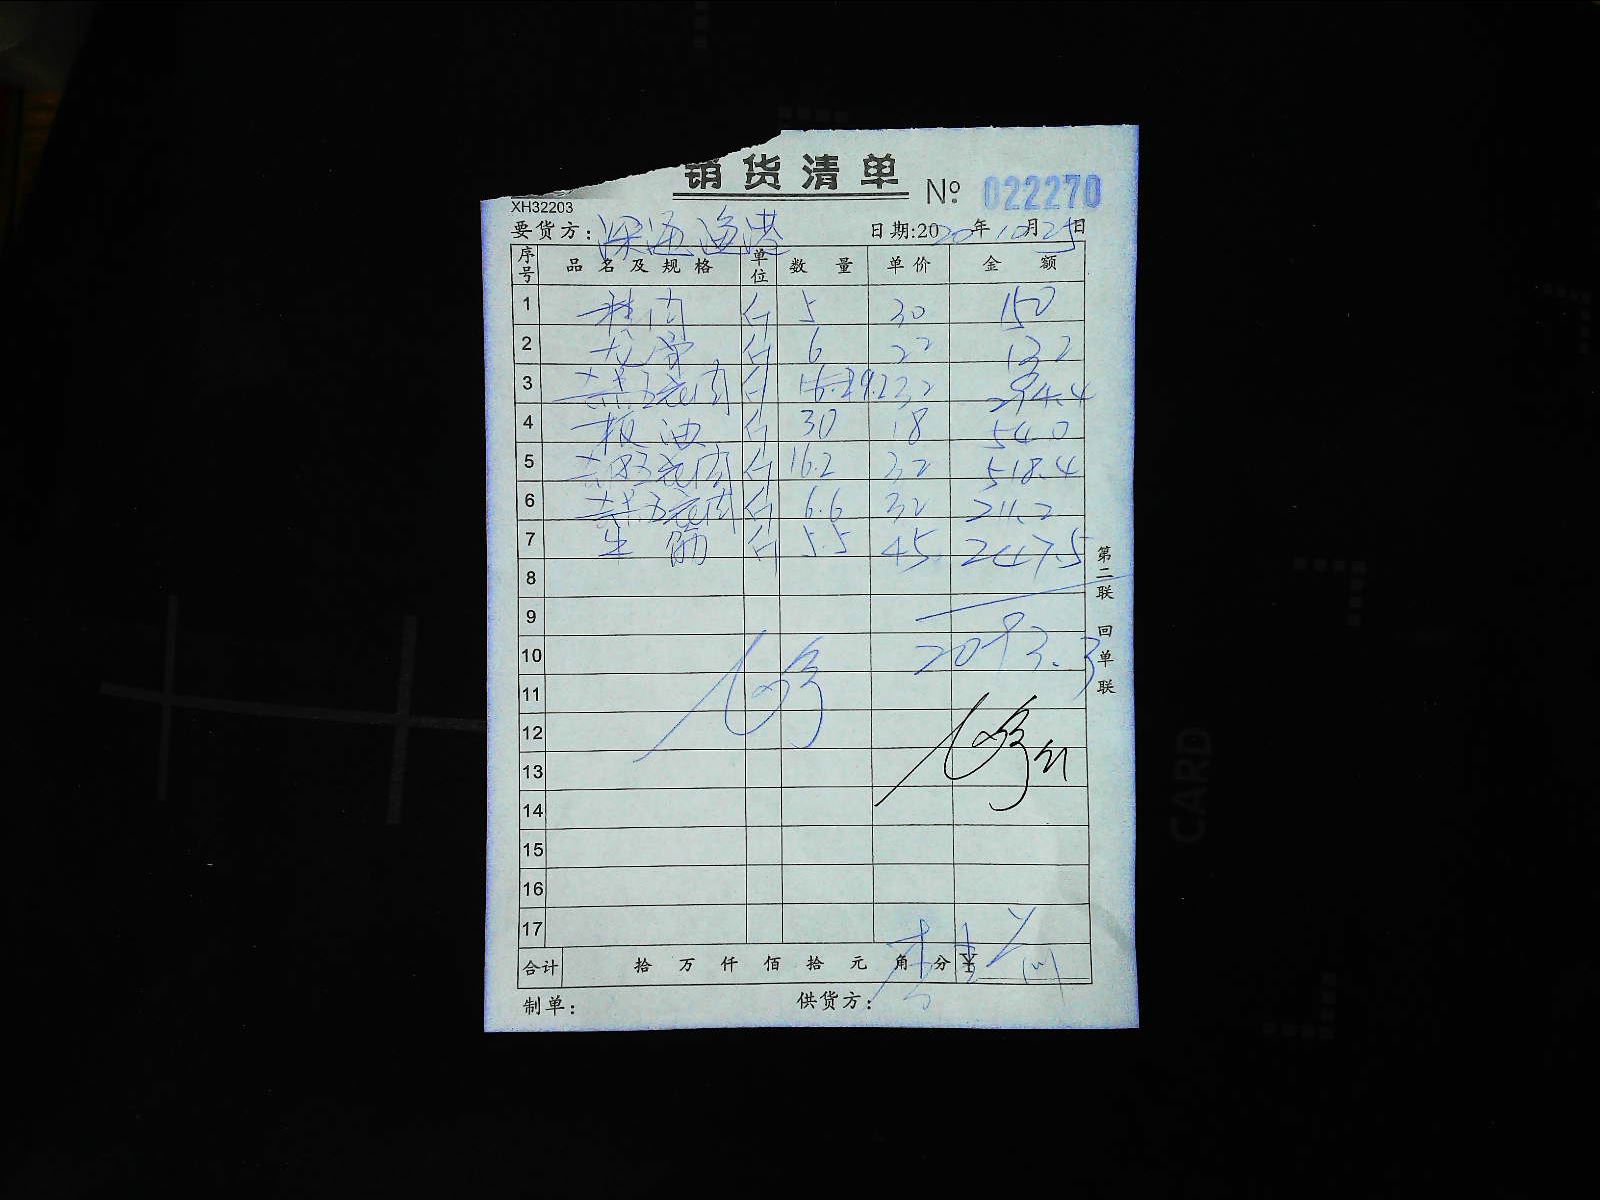 销货清单
№ 022270
XH32203
要货方: 深海渔港 日期:2020年10月25日
序号 品名及规格 单位 数量 单价 金额
1 肉 斤 5 30 150
2 龙骨 斤 6 22 132
3 五花肉 斤 9.2 32 294.4
4 板油 斤 30 18 540
5 五花肉 斤 16.2 32 518.4
6 五花肉 斤 6.6 32 211.2
7 牛 斤 5.5 45 247.5
8
9
10 2093.3
11
12
13
14
15
16
17
合计 拾 万 仟 佰 拾 元 角 分 ¥
制单: 供货方: 李
第二联 回单联
CARD